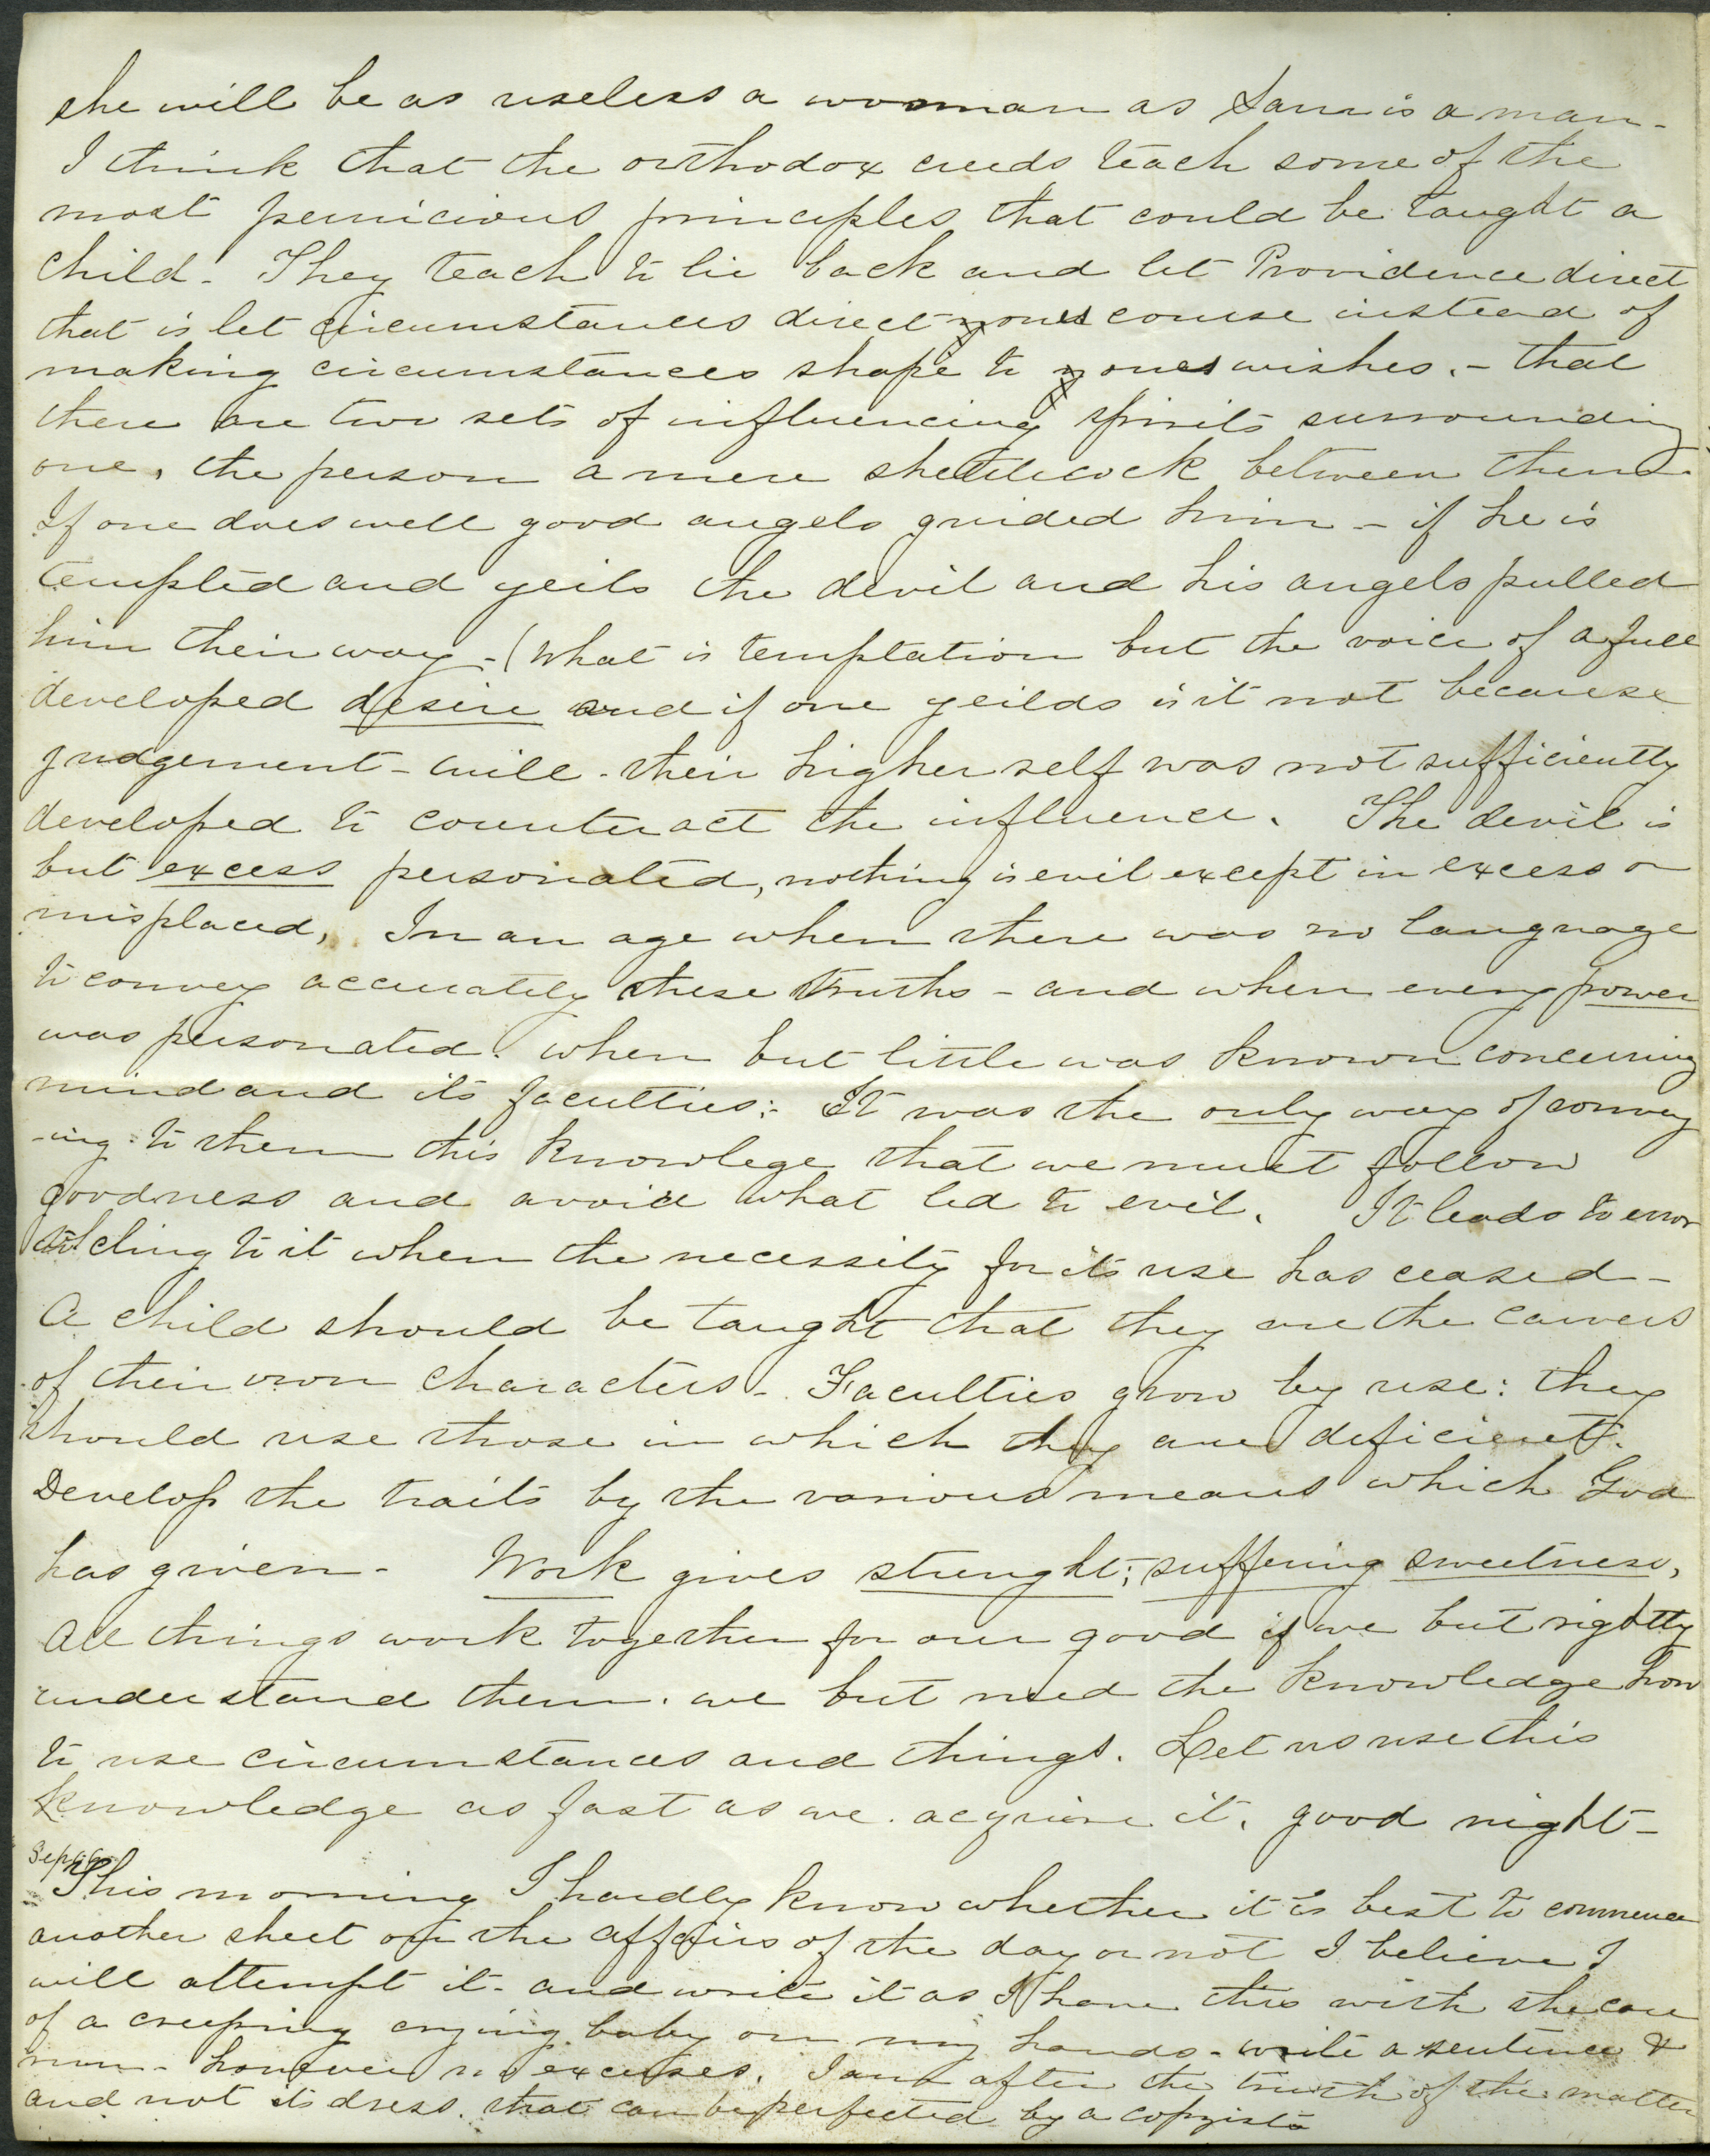 she will be as useless a woman as Sam is a man -
I think that the orthodox creeds teach some of the
most pernicious principles that could be taught a
child - They teach to lie back and let Providence direct
that is let circumstances direct ones course instead of
making circumstances shape to ones wishes. - that
there are two sets of influencing spirits surrounding
one, the person a mere shettlecock between them.
If one does well good angels guided him - if he is
tempted and yeils the devil and his angels pulled
him their way - (What is temptation but the voice of a full
developed desire and if one yeilds is it not because
judgement - will - their higher self was not sufficiently
developed to counteract the influence. The devil is
but excess personated, nothing is evil except in excess or
misplaced, In an age when there was no language
to convey accurately these truths - and when every power
was personated. when but little was known concerning
mind and its faculties: It was the only way of convey
-ing to them this knowlege that we must follow
goodness and avoid what led to evil. It leads to error
to cling to it when the necessity for its use has ceased -
A child should be taught that they are the carvers
of their own characters - Faculties grow by use: they
should use those in which they are deficient.
Develop the traits by the various means which God
has given - Work gives strenght; suffering sweetness,
All things work together for our good if we but rightly
understand them. we but need the knowledge how
to use circumstances and things. Let us use this
knowledge as fast as we acquire it. good night -
This morning I hardly know whether it is best to commence
another sheet on the affairs of the day or not I believe I
will attempt it - and write it as I have this with the care
of a creeping crying baby on my hands - write a sentence &
run - however no excuses. I am after the truth of the matter
and not its dress. that can be perfected by a copyist